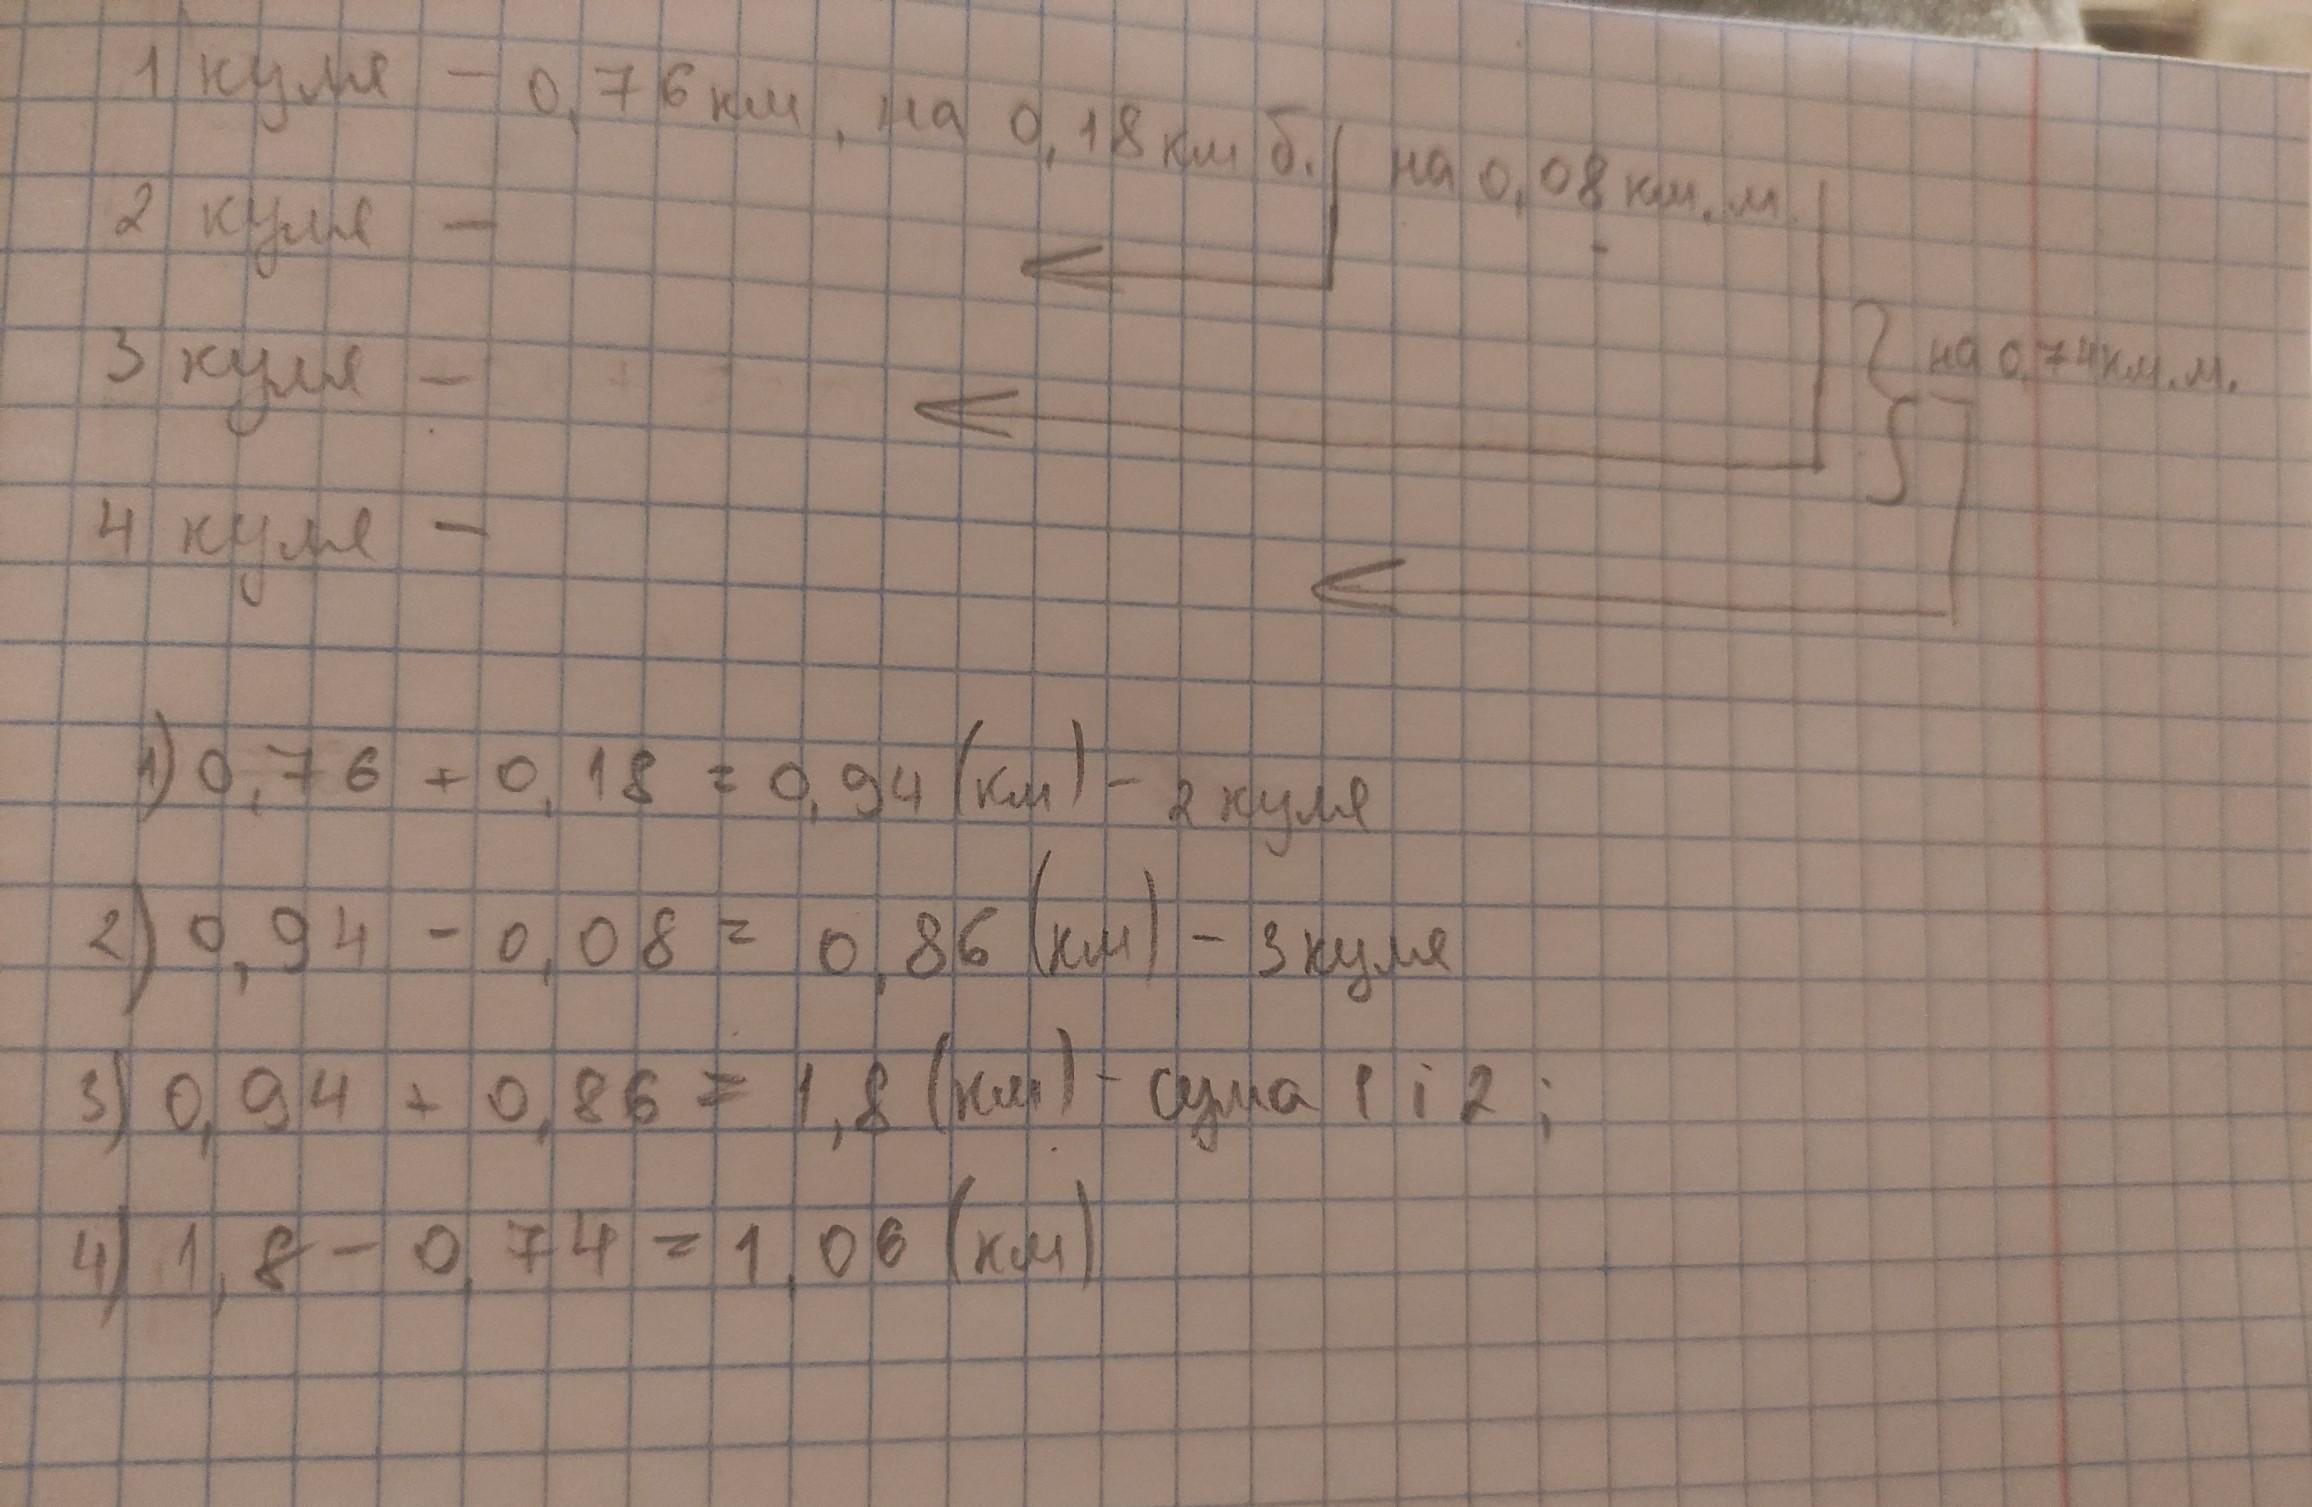 1 куля - 0,76 км, на 0,18 км б. на 0,08 км. м.
2 куля -
3 куля -
на 0,74 км. м.
4 куля -
1) 0,76 + 0,18 = 0,94 (км) - 2 куля
2) 0,94 - 0,08 = 0,86 (км) - 3 куля
3) 0,94 + 0,86 = 1,8 (км) - сума 1 і 2;
4) 1,8 - 0,74 = 1,06 (км)